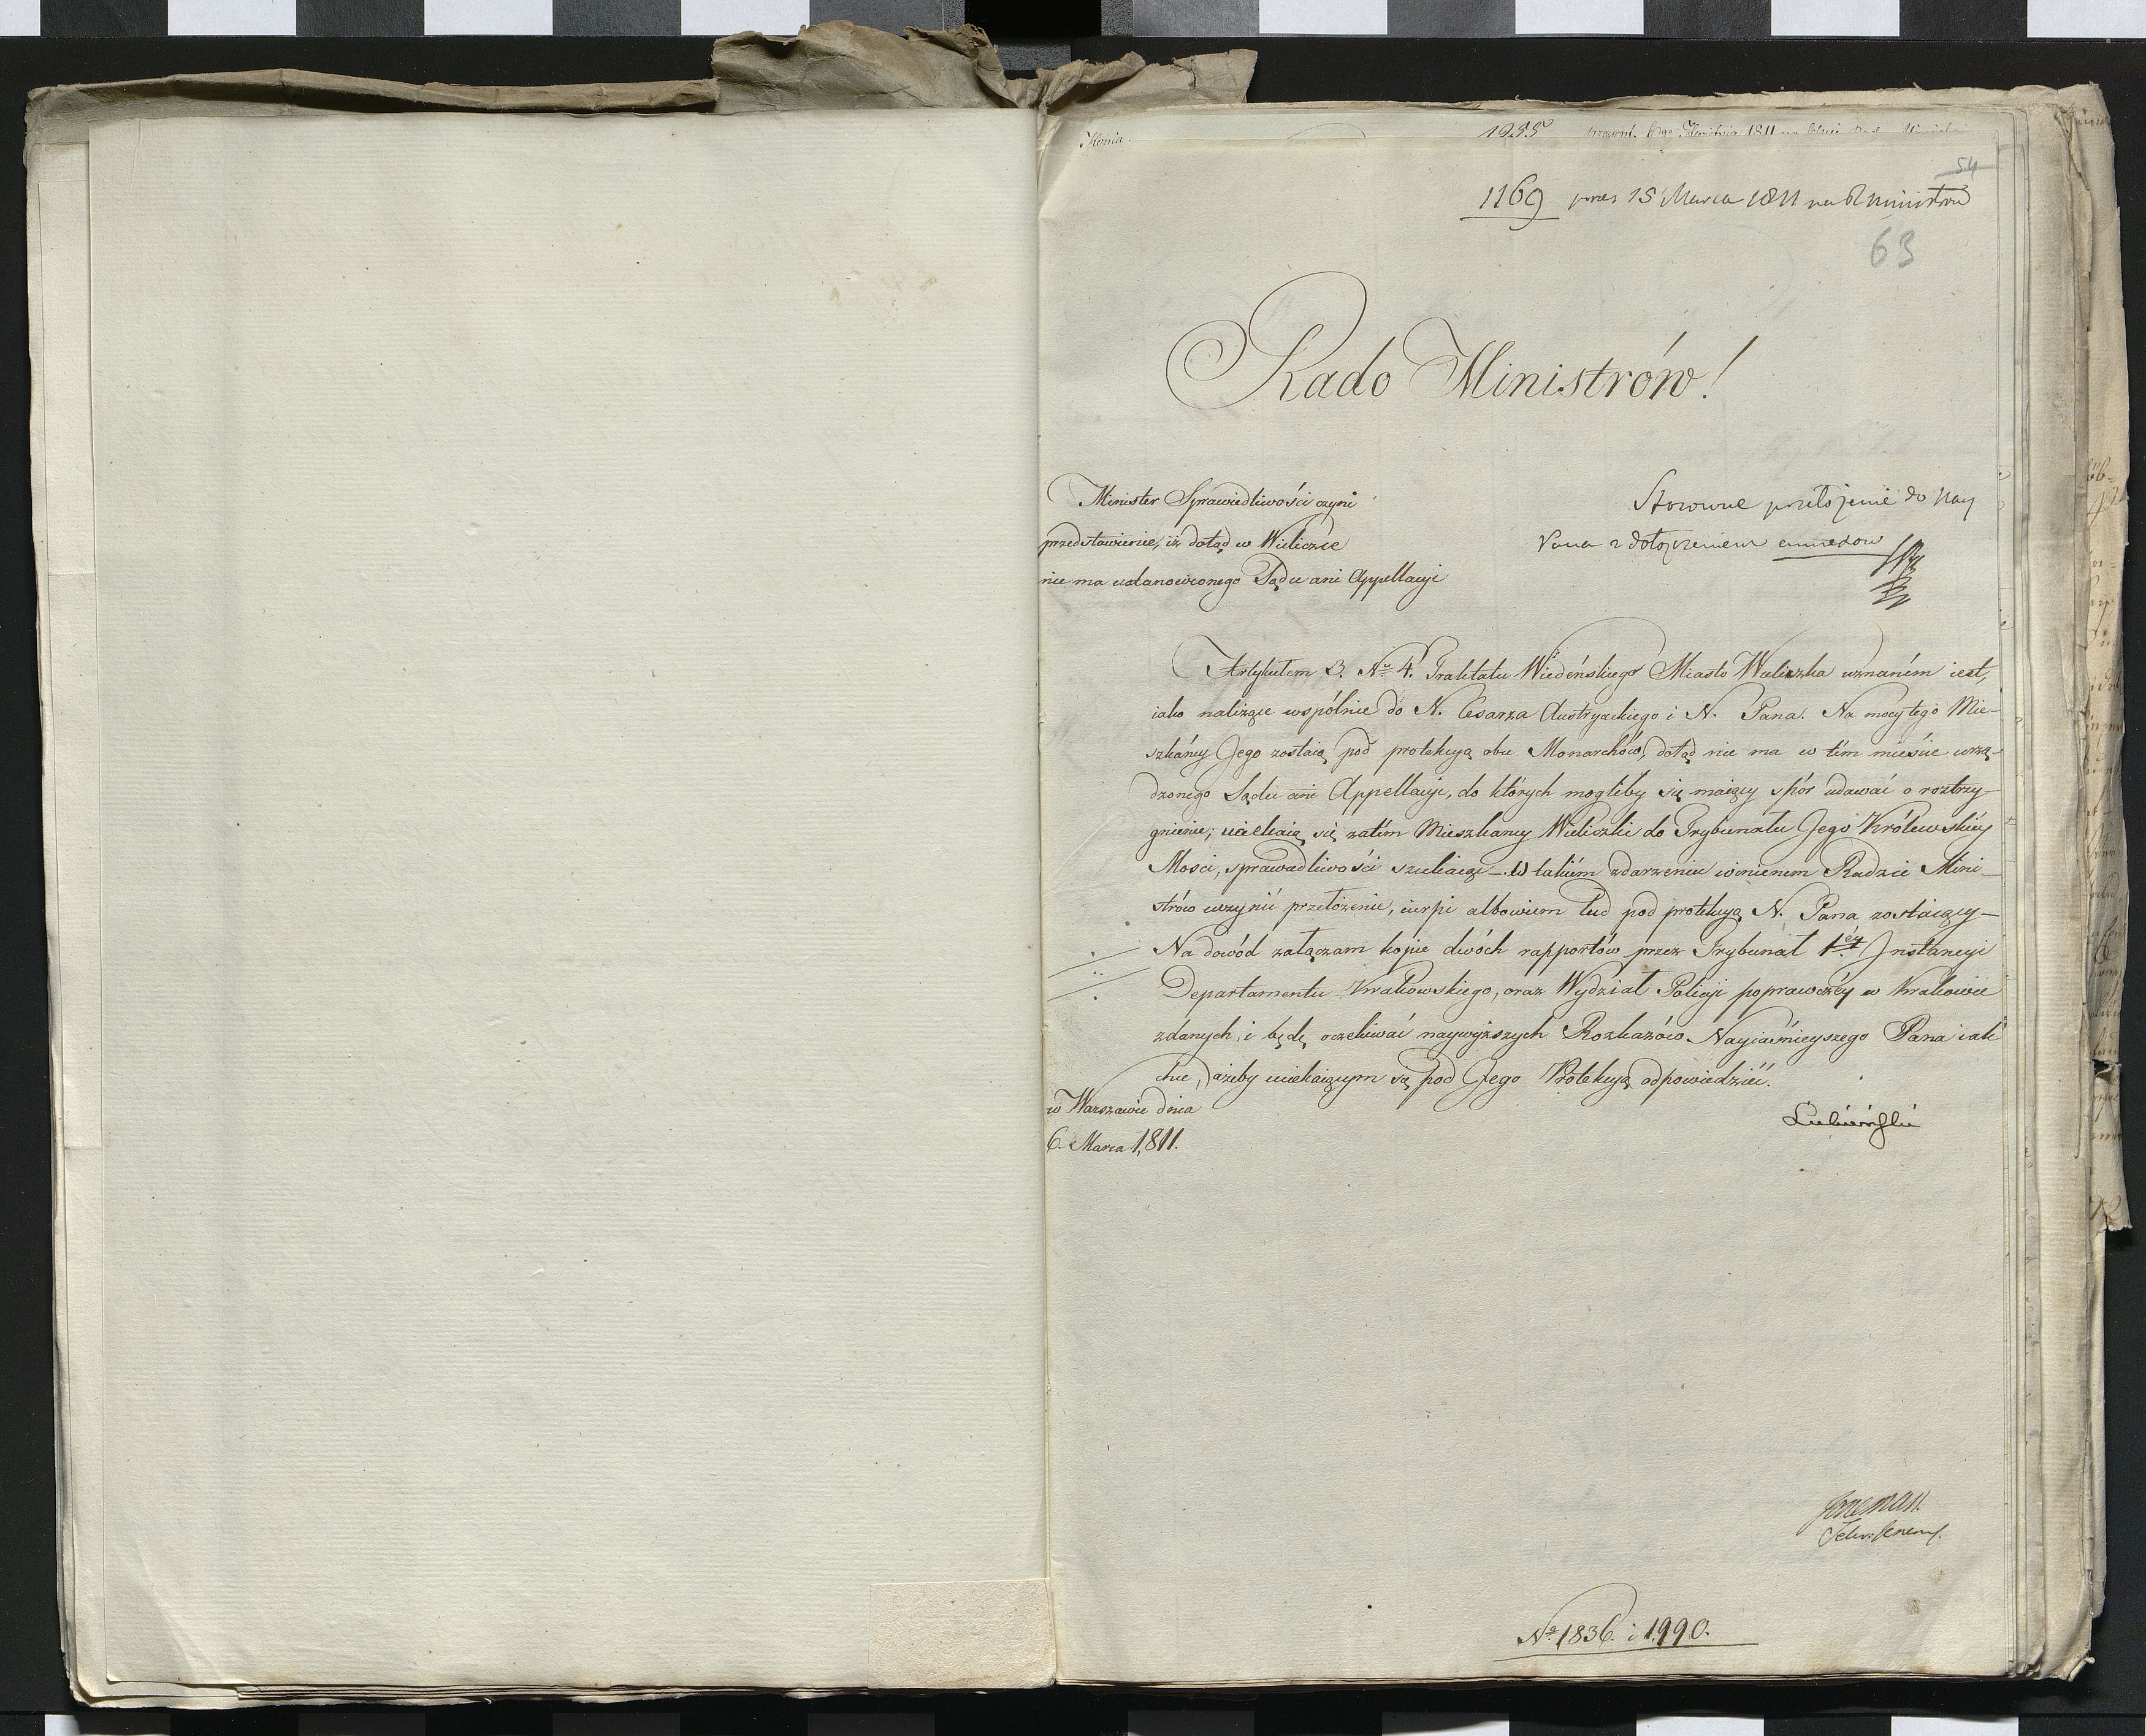 1255
1811
54
1169 prez 15 Marca 1811 na R Ministrow
63
Rado Ministrów!
Minister Sprawiedliwości czyni
przedstawienie, iż dotąd w Wieliczce
nie ma ustanowionego Sądu ani Appellacyi
Stosowne przełożenie do Nay
Pana z dołączeniem annexow
Artykułem 3. No 4. Traktatu Wiedeńskiego Miasto Wieliczka uznaném iest,
iako należące wspólnie do N. Cesarza Austryackiego i N. Pana. Na mocy tego Mie-
szkańcy Jego zostaią pod protekcyą obu Monarchów, dotąd nie ma w tém mieście urzą-
dzonego Sądu ani Appellacyi, do których mogliby się maiący spór udawać o roztrzy-
gnienie; uciekaią się zatém Mieszkańcy Wieliczki do Trybunału Jego Królewskiéy
Mości, sprawiedliwości szukaiąc. W takiém zdarzeniu winienem Radzie Mini-
strów uczynić przełożenie, cierpi albowiem lud pod protekcyą N. Pana zostaiący -
Na dowód załączam kopie dwóch rapportów przez Trybunał 1éy Instancyi
Departamentu Krakowskiego, oraz Wydział Policyi poprawczéy w Krakowie
zdanych, i będę oczekiwać naywyższych Rozkazów Nayiaśnieyszego Pana iak
chce, ażeby uciekaiącym się pod Jego Protekcyą odpowiedzieć.
w Warszawie dnia
6. Marca 1811.
Łubieński
No 1836. i 1990.